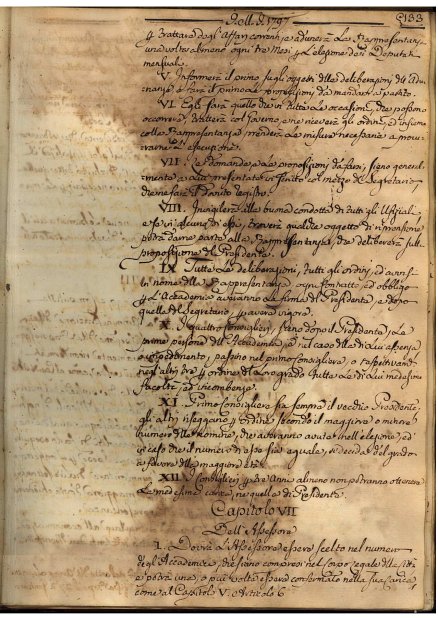 Dell. 1797
133
p trattare degli affari correnti e adunerà la Rappresentanza
una volta almeno ogni tre Mesi, p l'elezione dei Deputati
mensuali.
V. Informerà il primo sugli oggetti delle deliberazioni di Adu
nanza, e farà il primo le proposizioni da mandare a partito.
VI. Egli sarà quello che in tutte le occasioni, che possono
occorrere, tratterà col Governo, e ne riceverà gli ordini, ed insieme
colla Rappresentanza prenderà le misure necessarie a procu
rarne l'esecuzione.
VII. Le domande, e le proposizioni da farsi, sieno general
mente a lui presentate in scritto col mezzo del Segretario
che ne farà il dovuto registro.
VIII. Invigilerà alla buona condotta di tutti gli Uffiziali
e se in alcuno di essi, troverà qualche oggetto di riprensione
potrà darne parte alla Rappresentanza, che delibererà sulla
proposizione del Presidente.
IX. Tutte le deliberazioni, tutti gli ordini, ed atti
in nome della Rappresentanza ogni contratto, ed obbligo
p l'Accademia avranno la firma del Presidente, e dopo
quella del Segretario, p avere vigore.
X. I quattro Consiglieri, sieno dopo il Presidente, le
prime persone dell'Accademia, e nel caso della di lui assenza
o impedimento, passino nel primo Consigliere, o rispettivamente
negli altri tre p ordine del loro grado tutte le di lui medesime
facoltà, ed incombenze.
XI. Primo Consigliere sia sempre il vecchio Presidente
gli altri risieggano p ordine secondo il maggiore o minore
numero delle nomine, che avranno avuta nell'elezione, ed
in caso che il numero di esse sia eguale, si decida del grado
a favore della maggiore età.
XII. I Consiglieri p tre Anni almeno non potranno ottenere
la medesima carica, ne quella di Presidente.
Capitolo VII
Dell'Assessore
I. Dovrà l'Assessore essere scelto nel numero
degli Accademici, che siano compresi nel corpo legale della Città
e potrà una, o più volte essere confermato nella sua Carica
come al Capitolo V. Articolo 6